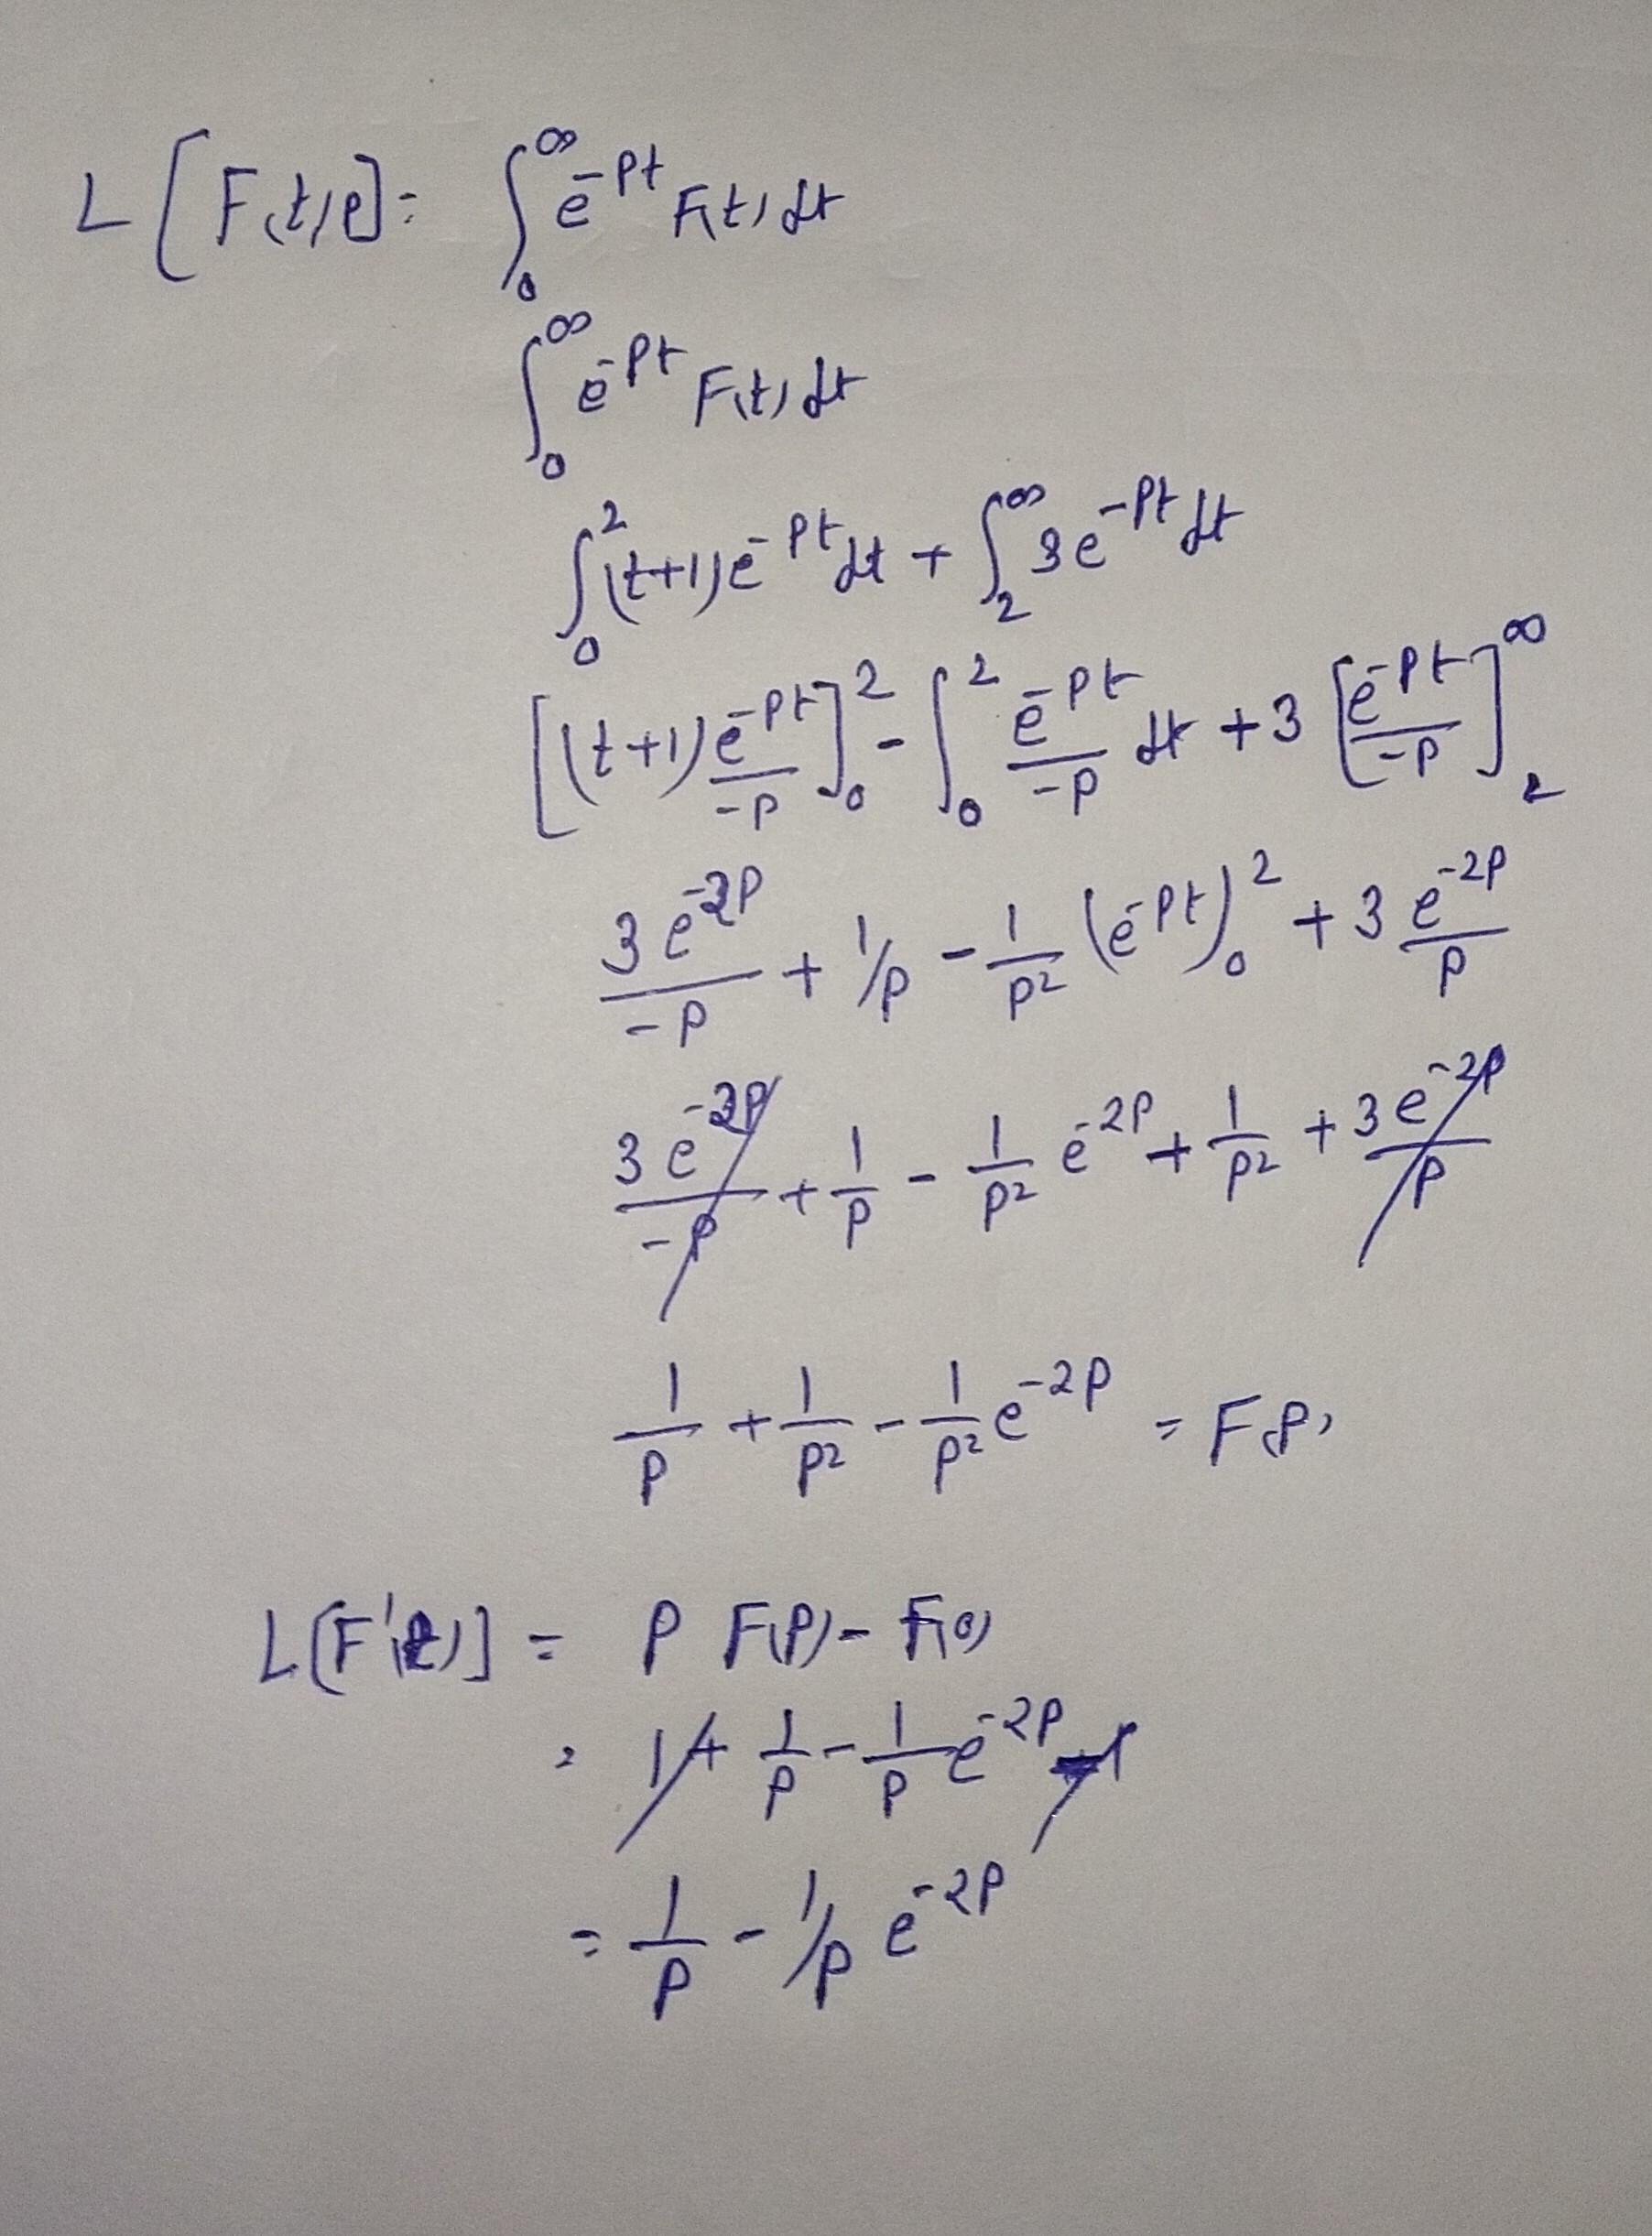 L[F(t)e]= ∫₀^∞ e^{-pt} F(t) dt
∫₀^∞ e^{-pt} F(t) dt
∫₀² (t+1)e^{-pt} dt + ∫₂^∞ 3e^{-pt} dt
[(t+1) e^{-pt}/-p]₀² - ∫₀² e^{-pt}/-p dt + 3 [e^{-pt}/-p]₂^∞
3e^{-2p}/-p + 1/p - 1/p² (e^{-pt})₀² + 3 e^{-2p}/p
3e^{-2p}/-p + 1/p - 1/p² e^{-2p} + 1/p² + 3e^{-2p}/p
1/p + 1/p² - 1/p² e^{-2p} = F(p)
L[F'(t)] = P F(P) - F(0)
= 1 + 1/p - 1/p e^{-2p} - 1
= 1/p - 1/p e^{-2p}